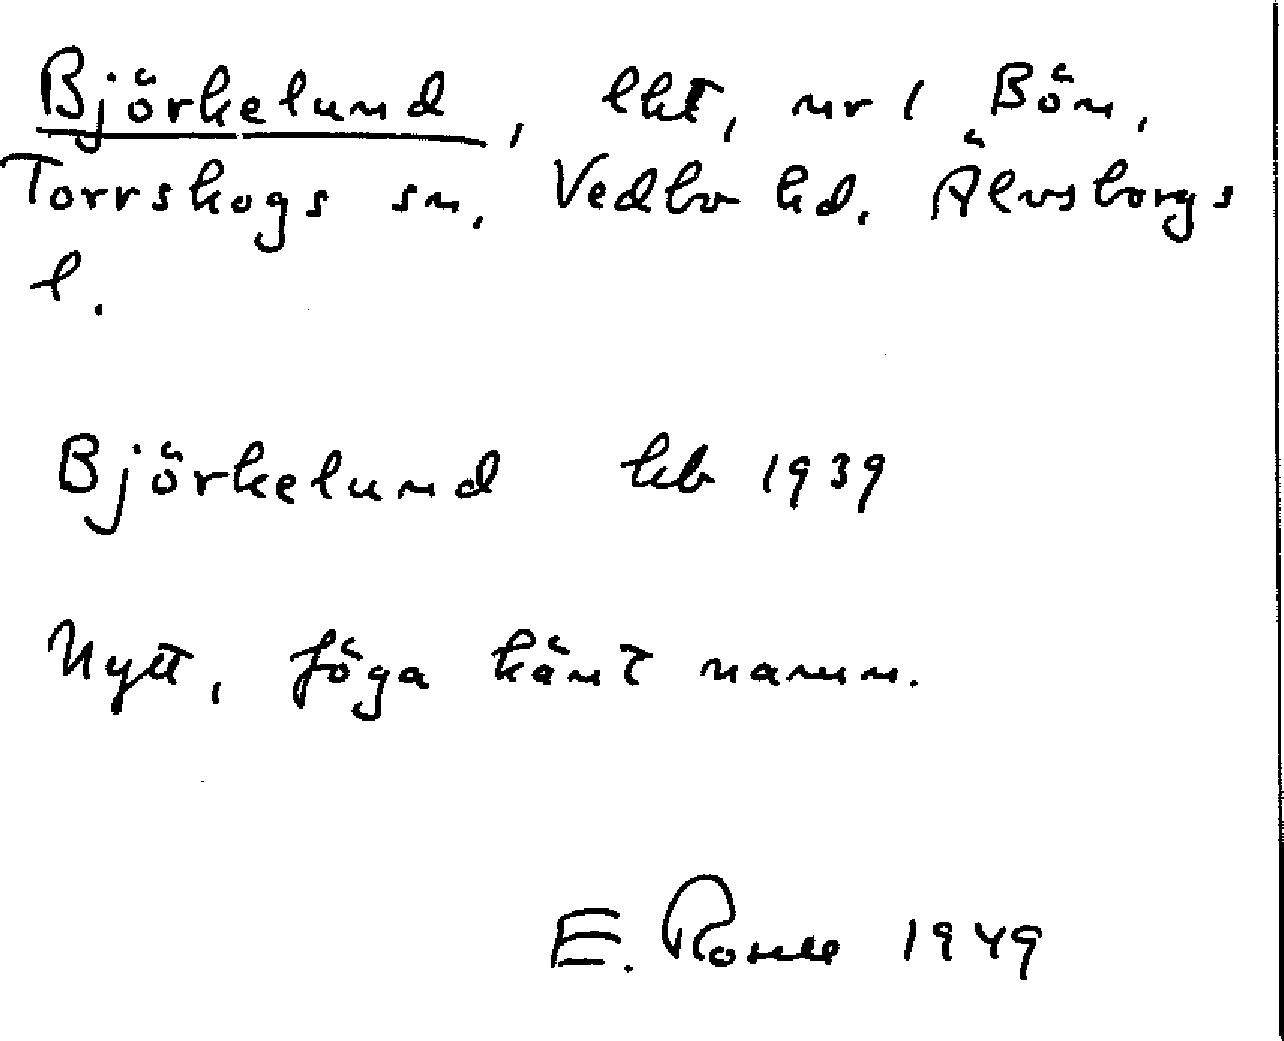 Björkelund, lht, nr 1 Bön,
Torrskogs sn, Vedbo hd. Älvsborgs
l.
Björkelund kb 1939
Nytt, föga känt namn.
E. 1949